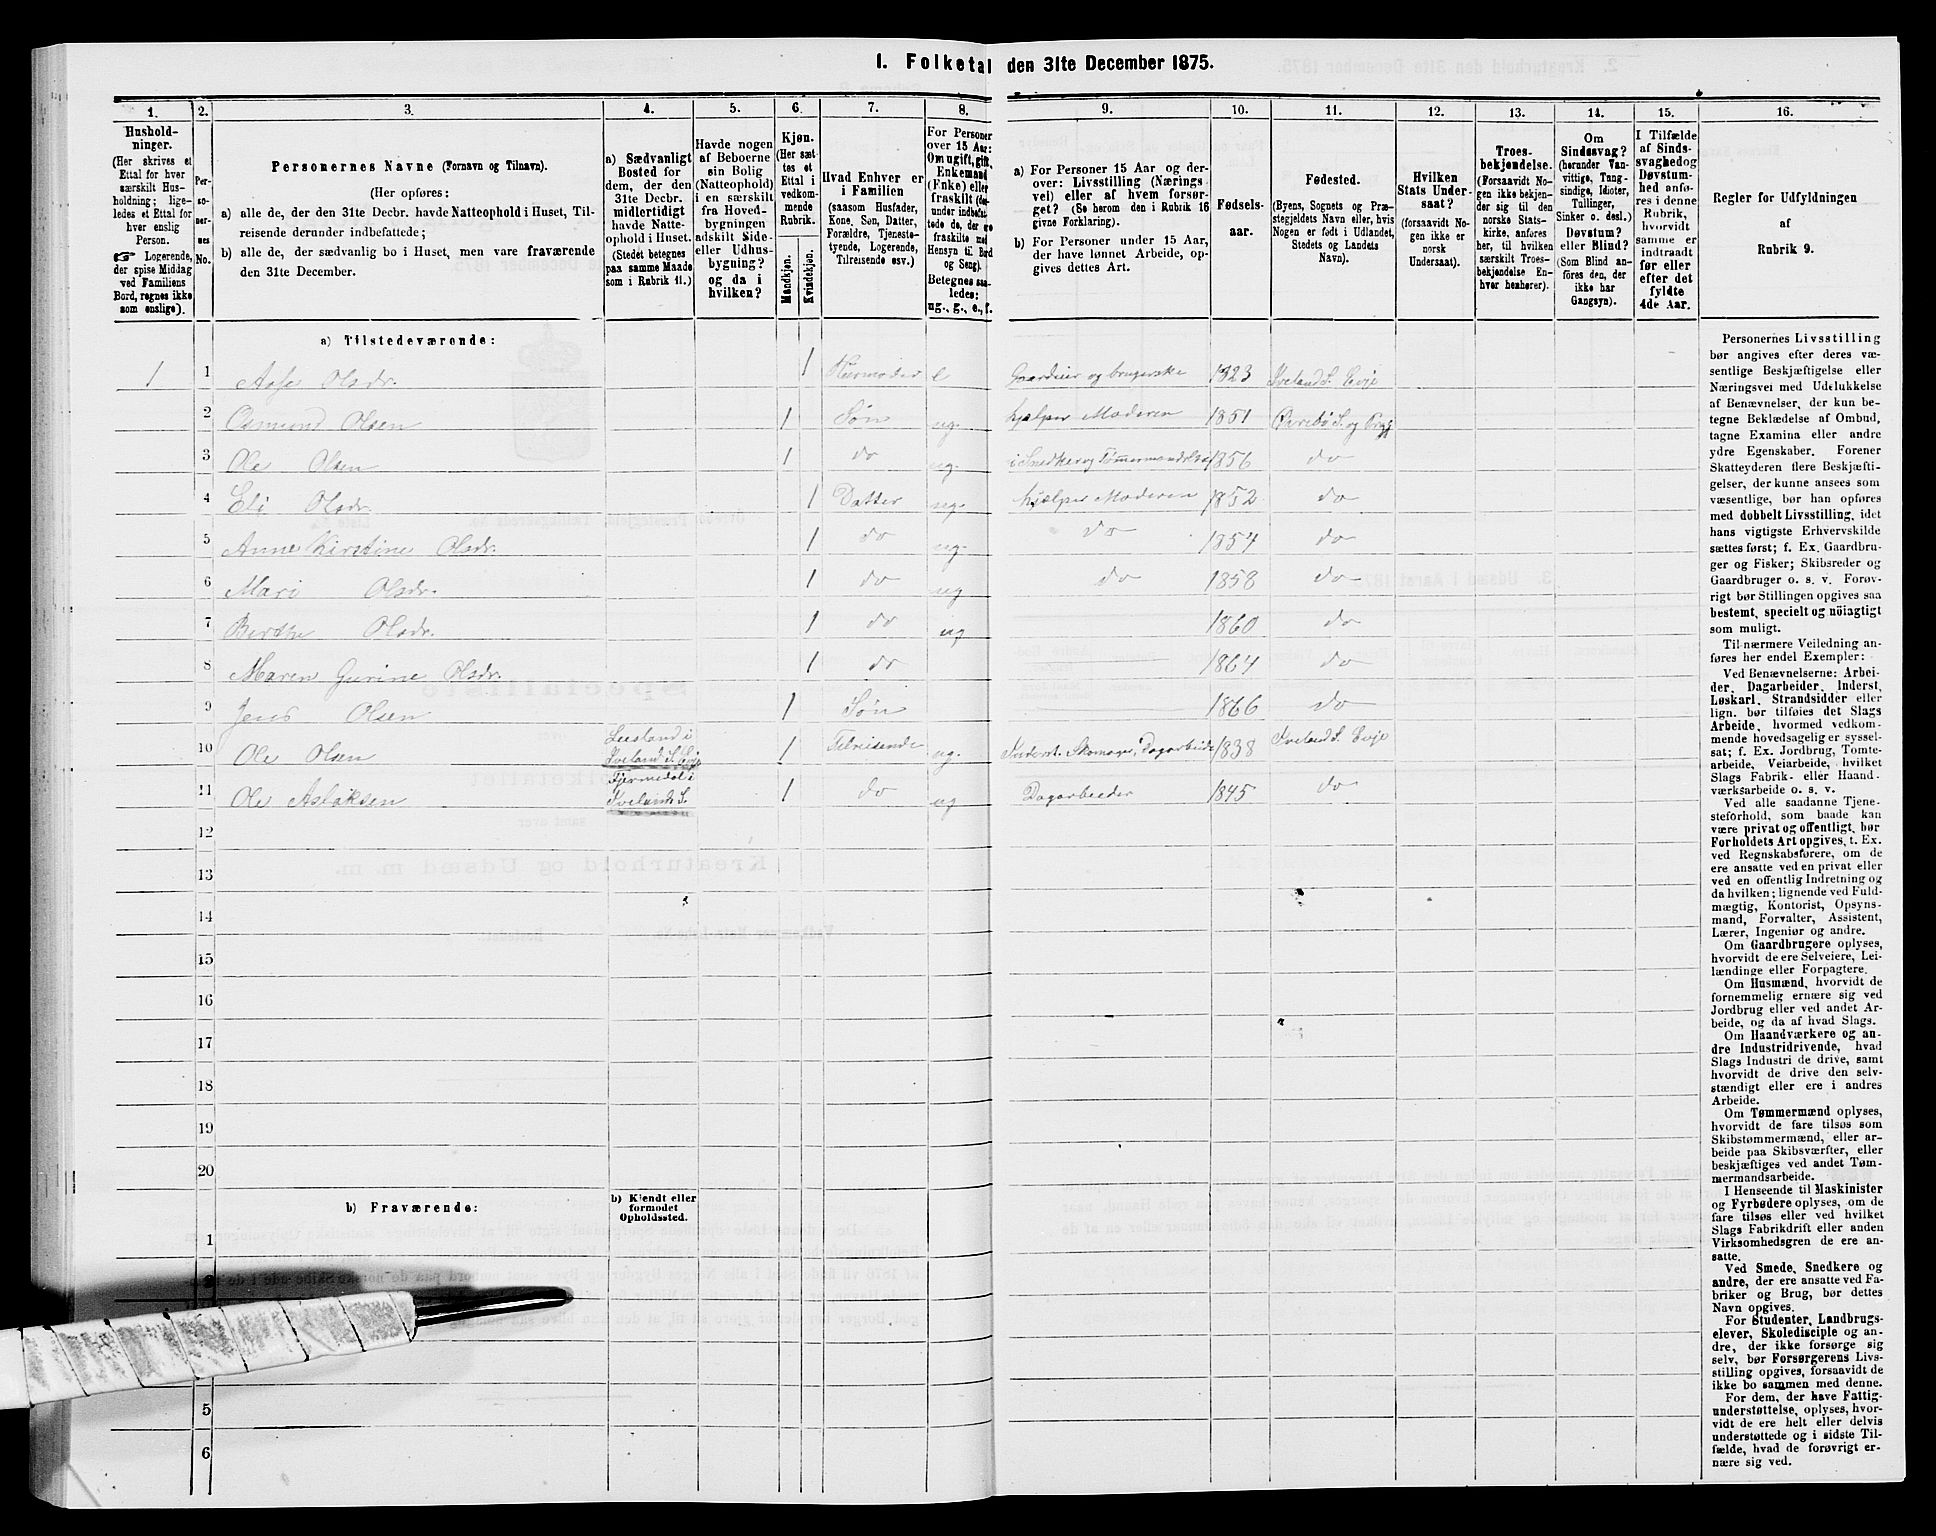 1. Folketal den 31te December 1875.
1. 2. 3. 4. 5. 6. 7. 8. 9. 10. 11. 12. 13. 14. 15. 16.
Hushold-
ninger.
(Her skrives et
Ettal for hver
særskilt Hus-
holdning; lige-
ledes et Ettal for
hver enslig
Person.
☞ Logerende,
der spise Middag
ved Familiens
Bord, regnes ikke
som enslige).
Per-
so-
ner-
nes
No.
Personernes Navne (Fornavn og Tilnavn).
(Her opføres:
a) alle de, der den 31te Decbr. havde Natteophold i Huset, Til-
reisende derunder indbefattede;
b) alle de, der sædvanlig bo i Huset, men vare fraværende
den 31te December.
a) Sædvanligt
Bosted for
dem, der den
31te Decbr.
midlertidigt
havde Natte-
ophold i Huset.
(Stedet betegnes
paa samme Maade
som i Rubrik 11.)
Havde nogen
af Beboerne
sin Bolig
(Natteophold)
i en særskilt
fra Hoved-
bygningen
adskilt Side-
eller Udhus-
bygning?
og da i
hvilken?
Kjøn.
(Her sæt-
tes et
Ettal i
vedkom-
mende
Rubrik.
Mandkjøn.
Kvindekjøn.
Hvad Enhver er
i Familien
(saasom Husfader,
Kone, Søn, Datter,
Forældre, Tjeneste-
tyende, Logerende,
Tilreisende osv.)
For Personer
over 15 Aar:
Om ugift, gift,
Enkemand
(Enke) eller
fraskilt (der-
under indbefat-
tede de, der ere
fraskilte med
Hensyn til Bord
og Seng).
Betegnes saa-
ledes:
ug., g., e., f.
a) For Personer 15 Aar og der-
over: Livsstilling (Nærings-
vei) eller af hvem forsør-
get? (Se herom den i Rubrik 16
givne Forklaring).
b) For Personer under 15 Aar,
der have lønnet Arbeide, op-
gives dettes Art.
Fødsels-
aar.
Fødested.
(Byens, Sognets og Præ-
stegjeldets Navn eller, hvis
Nogen er født i Udlandet,
Stedets og Landets
Navn).
Hvilken
Stats Under-
saat?
(forsaavidt No-
gen ikke er
norsk
Undersaat).
Troes-
bekjendelse.
(Forsaavidt No-
gen ikke bekjen-
der sig til den
norske Stats-
kirke, anføres
her, til hvilken
særskilt Troes-
bekjendelse En-
hver henhører).
Om
Sindssvag?
(herunder Van-
vittige, Tung-
sindige, Idioter,
Tullinger,
Sinker o. desl.)
Døvstum?
eller Blind?
(Som Blind an-
føres den, der
ikke har
Gangsyn).
I Tilfælde
af Sinds-
svaghed og
Døvstum-
hed anfø-
res i denne
Rubrik,
hvorvidt
samme er
indtraadt
før eller
efter det
fyldte
4de Aar.
Regler for Udfyldningen
af
Rubrik 9.
a) Tilstedeværende:
1 1 Aase Olsdr. 1 Huusmoder e Gaardeier og brugerske 1823 Iveland S. Evje
2 Osmund Olsen 1 Søn ug. hjelper Moderen 1851 Øvrebø S. og Prgj
3 Ole Olsen 1 do ug. 1856 do
4 Eli Olsdr. 1 Datter ug. hjælper Moderen 1852 do
5 Anne Kirstine Olsdr. 1 do ug. do 1854 do
6 Mari Olsdr. 1 do ug do 1858 do
7 Berthe Olsdr. 1 do ug 1860 do
8 Maren Gurine Olsdr. 1 do 1864 do
9 Jens Olsen 1 Søn 1866 do
10 Ole Olsen Iveland S. Evje 1 Tilreisende ug. Inderst. Skomager, Dagarbeide 1838 Iveland S. Evje
11 Ole Aslaksen Ivelands S. 1 do ug Dagarbeider 1845 do
12
13
14
15
16
17
18
19
20
b) Fraværende:
b) Kjendt eller
formodet
Opholdssted.
1
2
5
6
Personernes Livsstilling
bør angives efter deres væ-
sentlige Beskjæftigelse eller
Næringsvei med Udelukkelse
af Benævnelser, der kun be-
tegne Beklædelse af Ombud,
tagne Examina eller andre
ydre Egenskaber. Forener
Skatteyderen flere Beskjæfti-
gelser, der kunne ansees som
væsentlige, bør han opføres
med dobbelt Livsstilling, idet
hans vigtigste Erhvervskilde
sættes først; f. Ex. Gaardbru-
ger og Fisker; Skibsreder og
Gaardbruger o. s. v. Forøv-
rigt bør Stillingen opgives saa
bestemt, specielt og nöiagtigt
som muligt.
Til nærmere Veiledning an-
føres her endel Exempler:
Ved Benævnelserne: Arbei-
der, Dagarbeider, Inderst,
Løskarl, Strandsidder eller
lign. bør tilføies det Slags
Arbeide, hvormed vedkom-
mende hovedsagelig er syssel-
sat; f. Ex. Jordbrug, Tomte-
arbeide, Veiarbeide, hvilket
Slags Fabrik- eller Haand-
værksarbeide o. s. v.
Ved alle saadanne Tjene-
steforhold, som baade kan
være privat og offentligt, bør
Forholdets Art opgives, t. Ex.
ved Regnskabsførere, om de
ere ansatte ved en privat eller
ved en offentlig Indretning og
da hvilken; lignende ved Fuld-
mægtig, Kontorist, Opsyns-
mand, Forvalter, Assistent,
Lærer, Ingeniør og andre.
Om Gaardbrugere oplyses,
hvorvidt de ere Selveiere, Lei-
lændinge eller Forpagtere.
Om Husmænd, hvorvidt de
fornemmelig ernære sig ved
Jordbrug eller ved andet Ar-
beide, og da af hvad Slags.
Om Haandværkere og an-
dre Industridrivende, hvad
Slags Industri de drive, samt
hvorvidt de drive den selv-
stændigt eller ere i andres
Arbeide.
Om Tømmermænd oplyses,
hvorvidt de fare tilsøs som
Skibstømmermænd, eller ar-
beide paa Skibsværfter, eller
beskjæftiges ved andet Tøm-
mermandsarbeide.
I Henseende til Maskinister
og Fyrbødere oplyses, om de
fare tilsøs eller ved hvilket
Slags Fabrikdrift eller anden
Virksomhedsgren de ere an-
satte.
Ved Smede, Snedkere og
andre, der ere ansatte ved Fa-
briker og Brug, bør dettes
Navn opgives.
For Studenter, Landbrugs-
elever, Skoledisciple og an-
dre, der ikke forsørge sig
selv, bør Forsørgerens Livs-
stilling opgives, forsaavidt de
ikke bo sammen med denne.
For dem, der have Fattig-
understøttelse, oplyses, hvor-
vidt de ere helt eller delvis
understøttede og i sidste Til-
fælde, hvad de forøvrigt er-
nære sig ved.